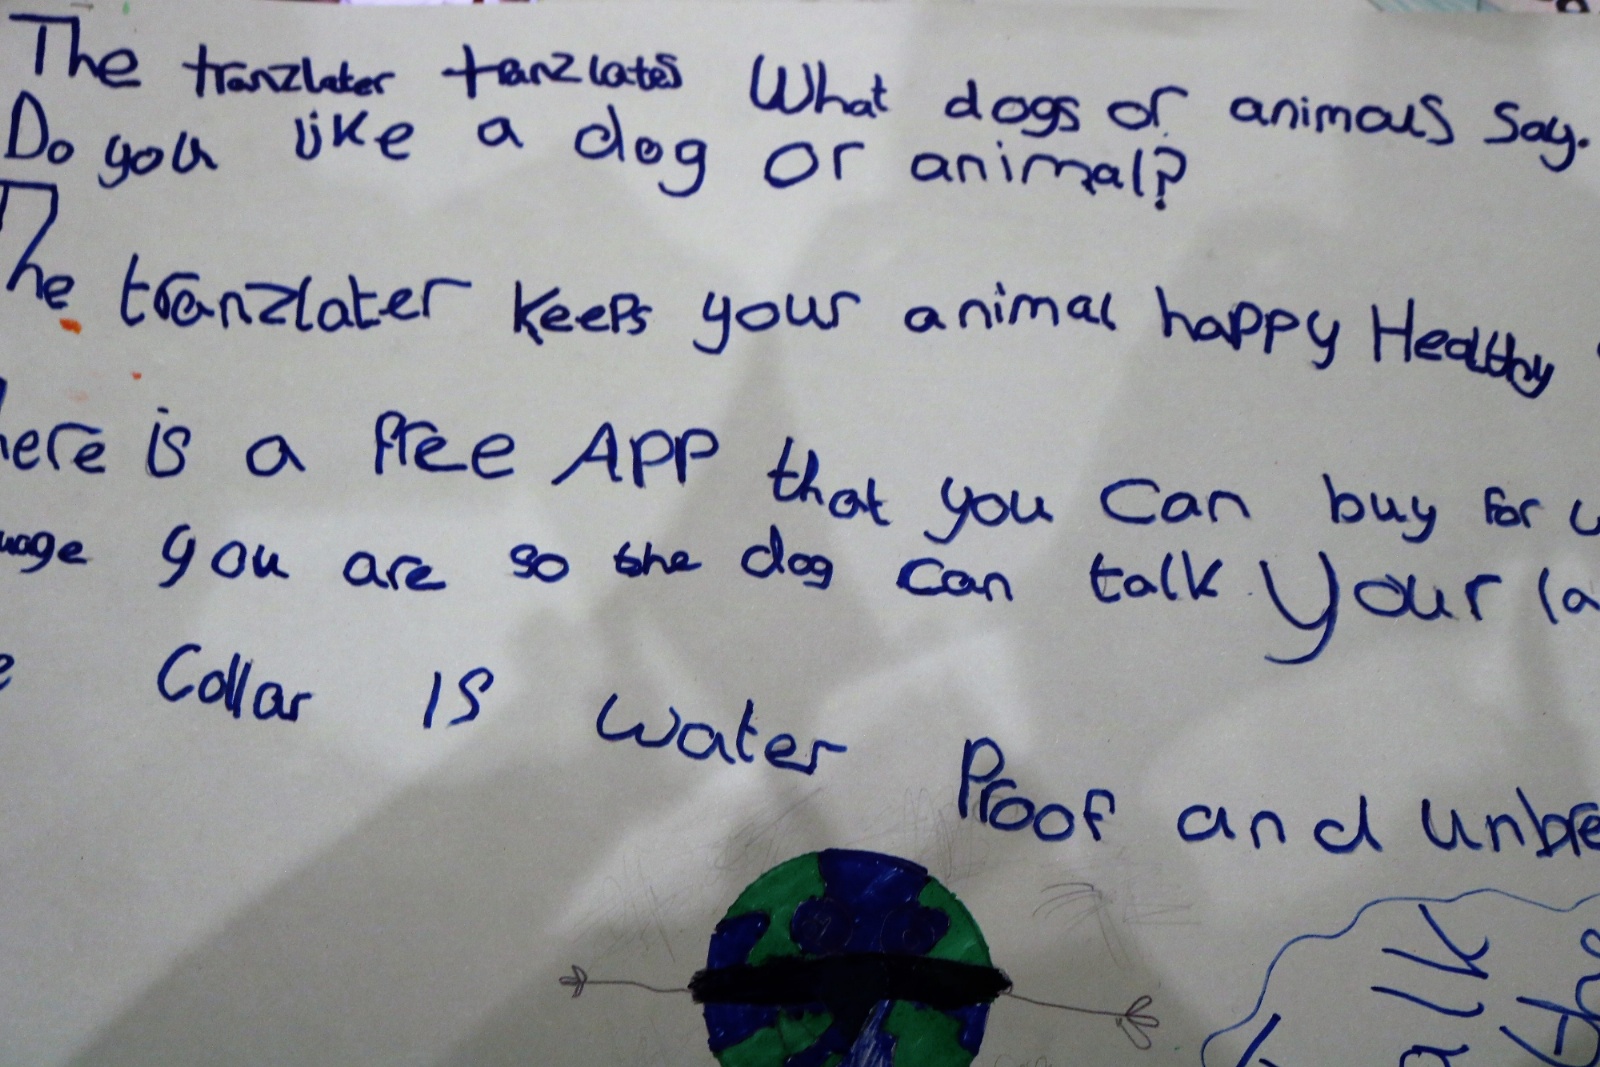 The tranzlater tanzlates What dogs or animals say.
Do you like a dog or animal?
The tranzlater keeps your animal happy Healthy
here is a free APP that you can buy for
uage you are so the dog can talk your la
e Collar is water Proof and unbre
alk the